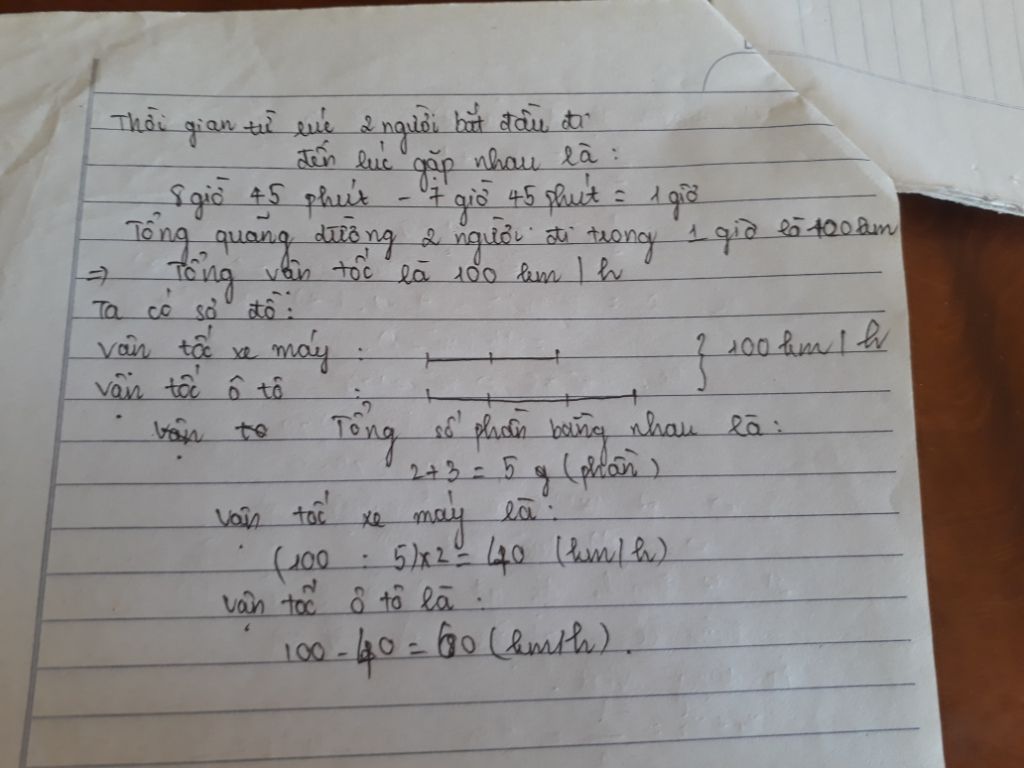 Thời gian từ lúc 2 người bắt đầu đi
đến lúc gặp nhau là:
8 giờ 45 phút - 7 giờ 45 phút = 1 giờ
Tổng quãng đường 2 người đi trong 1 giờ là 100 km
=> Tổng vận tốc là 100 km/h
Ta có sơ đồ:
Vận tốc xe máy : } 100 km/h
Vận tốc ô tô :
Vận to Tổng số phần bằng nhau là:
2+3 = 5 (phần)
Vận tốc xe máy là:
(100 : 5)x2 = 40 (km/h)
Vận tốc ô tô là:
100 - 40 = 60 (km/h).